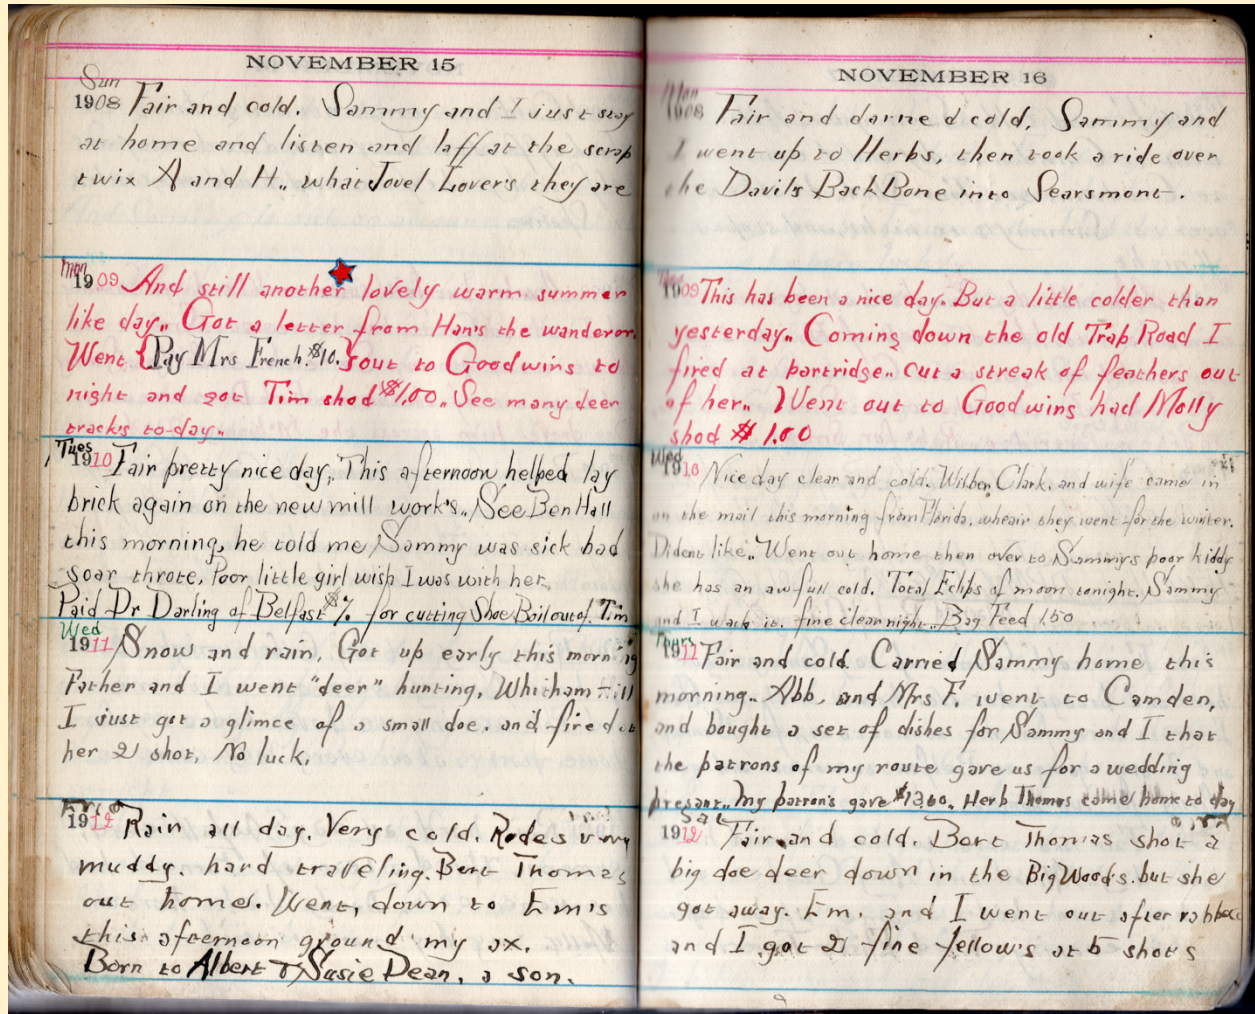 NOVEMBER 15
Sun
1908 Fair and cold. Sammy and I just stay
at home and listen and laff at the scrap
twix A and H.. what Jovel Lover's they are
Mon
1909 And still another lovely warm summer
like day.. Got a letter from Han's the wanderor.
Went {Pay Mrs French. $10.} out to Goodwins to
night and got Tim shod $1.00.. See many deer
track's to-day..
Tues
1910 Fair pretty nice day,. This afternoon helped lay
brick again on the new mill work's.. See Ben Hall
this morning, he told me Sammy was sick bad
soar throte. Poor little girl wish I was with her.
Paid Dr Darling of Belfast $7. for cutting Shoe Boil out of. Tim
Wed
1911 Snow and rain. Got up early this morning
Father and I went "deer" hunting, Whitham Hill
I just got a glimce of a small doe. and fired at
her 2 shot. No luck.
Fri
1912 Rain all day. Very cold. Rodes very
muddy. hard traveling. Bert Thomas
out home. Went, down to Em's
this afternoon ground my ax.
Born to Albert & Susie Dean, a son.
NOVEMBER 16
Mon
1908 Fair and darned cold. Sammy and
I went up to Herbs, then took a ride over
the Davil's Back Bone into Searsmont.
1909 This has been a nice day. But a little colder than
yesterday.. Coming down the old Trap Road I
fired at partridge.. cut a streak of feathers out
of her.. Went out to Goodwins had Molly
shod $1.00
Wed
1910 Nice day clear and cold. Wilber Clark. and wife came in
on the mail this morning from Florida. wheair they went for the winter.
Dident like.. Went out home then over to Sammys poor kiddy
she has an awfull cold. Total Eclips of moon tonight. Sammy
and I watch it. fine clear night.. Bag Feed 1.50
Thurs
1911 Fair and cold. Carried Sammy home this
morning.. Abb. and Mrs F. went to Camden,
and bought a set of dishes for Sammy and I that
the patrons of my route gave us for a wedding
presant.. My patron's gave $13.60. Herb Thomas came home to day
Sat
1912 Fair and cold. Bert Thomas shot a
big doe deer down in the Big Wood's. but she
got away. Em. and I went out after
and I got 2 fine fellow's at 5 shots